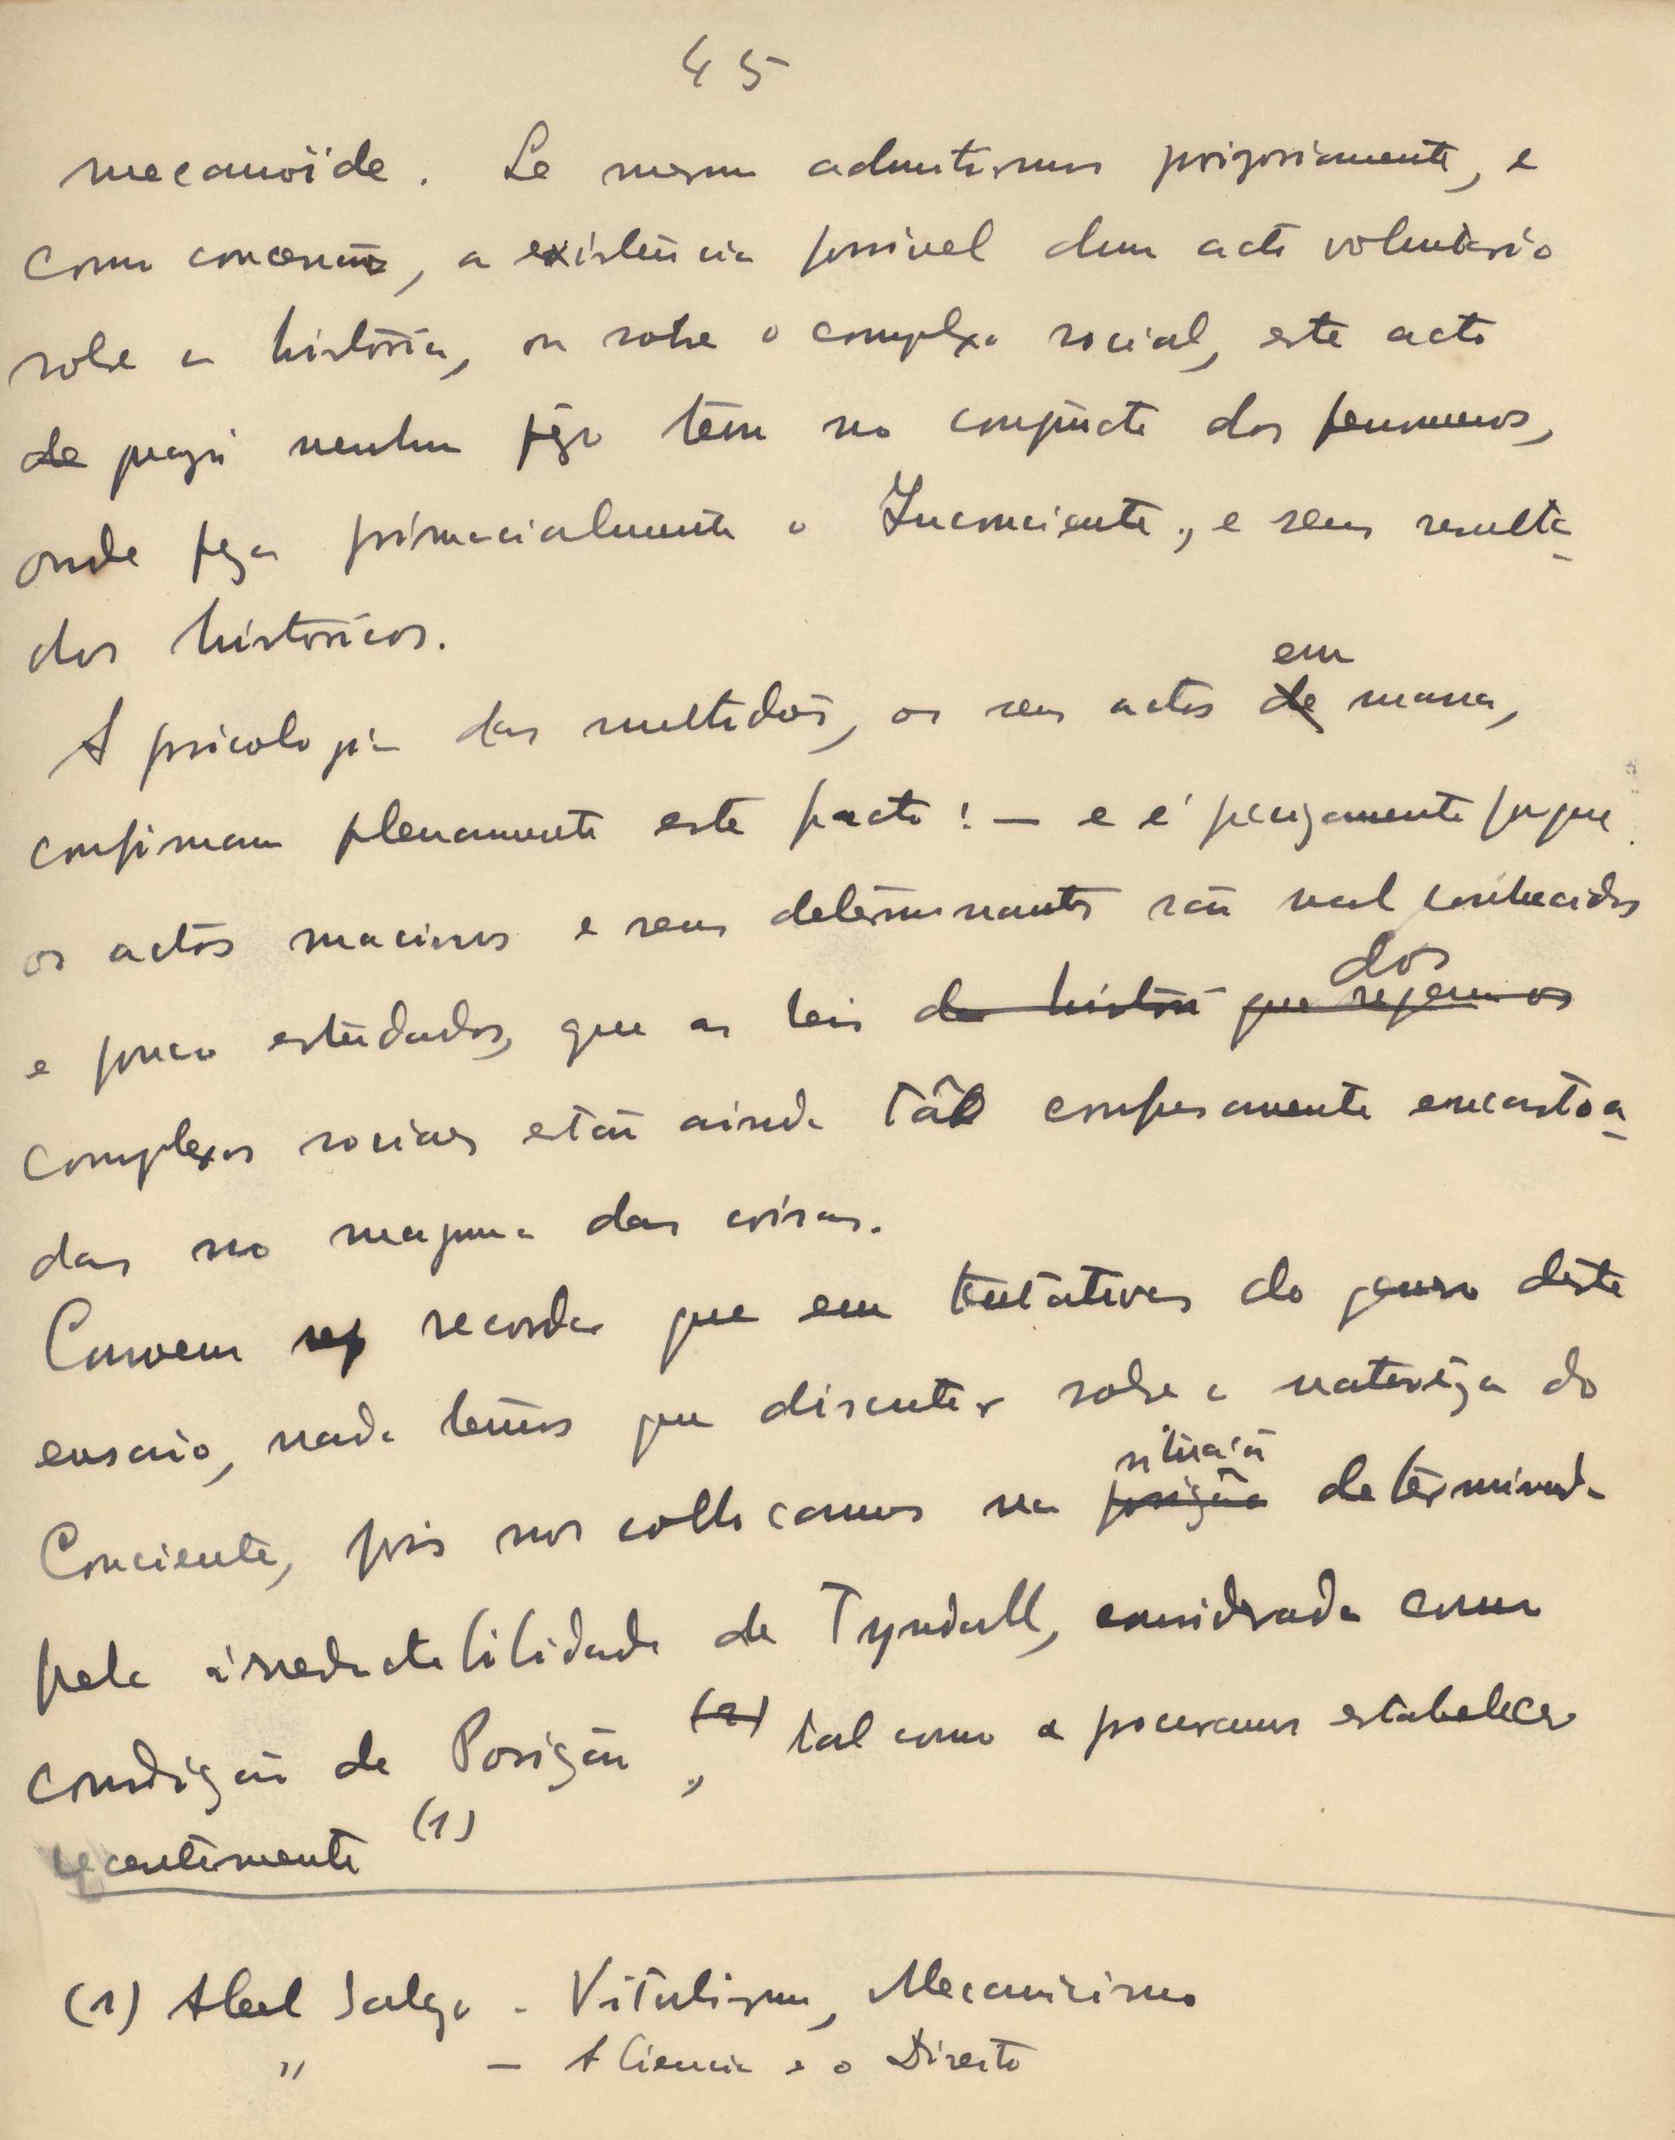 45
mecanoïde. Se mesmo admitirmos provisoriamente, e
como concessão, a existência possivel dum acto voluntário
sobre a história, ou sobre o complexo social, este acto
de nenhum pêso tem no conjuncto dos fenomenos,
onde pesa primacialmente o Inconciente, e seus resulta-
dos historicos.
A psicologia das multidões, os seus actos de em massa,
confirmam plenamente este facto: — e é precisamente porque
os actos macissos e seus determinantes são mal conhecidos
e pouco estudados, que as leis da histori que regem os dos
complexos sociaes estão ainda tão confusamente encastoa-
das no magma das coisas.
Convem recordar que em tentativas do genero deste
ensaio, nada temos que discutir sobre a naturêza do
Conciente, pois nos collocamos na posição situação determinada
pela irreductibilidade de Tyndall, considerada como
condição de Posição (2), tal como a procuramos estabelecer
recentemente (1)
(1) Abel Salazar - Vitalismo, Mecanicismo
" — A Ciencia e o Direito